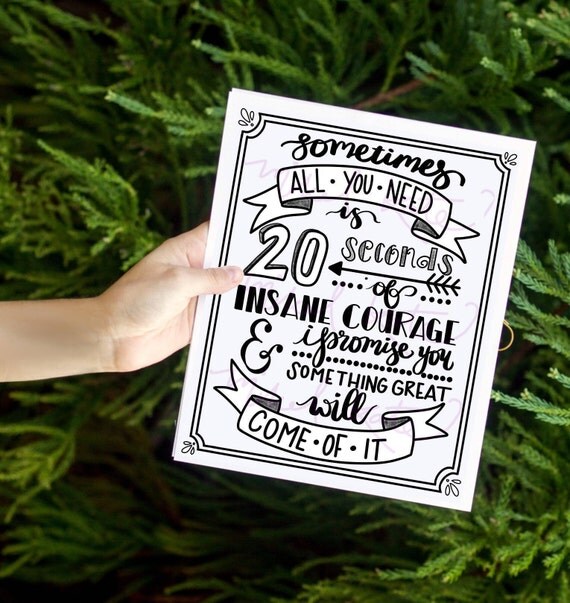 sometimes
ALL • YOU • NEED
is
20 seconds
of
INSANE COURAGE
& i promise you
SOMETHING GREAT
will
COME • OF • IT